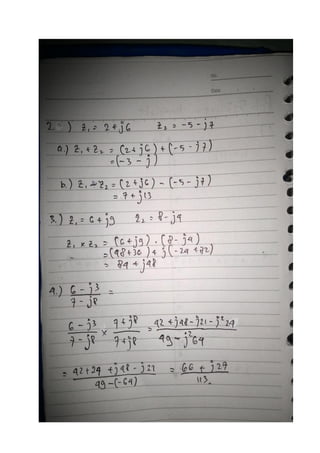 No.
Date
2.) z₁ = 2+j6 z₂ = -5-j7
a.) z₁+z₂ = (2+j6)+(-5-j7)
= (-3-j)
b.) z₁-z₂ = (2+j6) - (-5-j7)
= 7+j13
3.) z₁ = 6+j9 z₂ = 8-j4
z₁ x z₂ = (6+j9).(8-j4)
= (48+36)+j(-24+72)
= 84+j48
4.) 6-j3 / 7-j8 =
6-j3 / 7-j8 x 7+j8 / 7+j8 = 42+j48-j21-j²24 / 49-j²64
= 42+24+j48-j21 / 49-(-64) = 66+j27 / 113